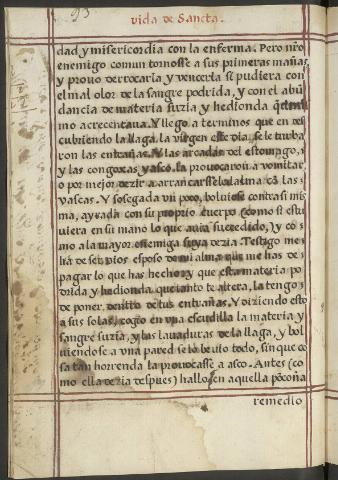 93
vida de Sancta.
dad y misericordia con la enferma. Pero nřo
enemigo comun tornosse a sus primeras mañas
y provo derrocarla y vencerla si pudiera con
el mal olor de la sangre podrida, y con el abũ
dancia de materia suzia y hedionda
mo acrecentava. Y llego a terminos que en
cubriendo la llaga, la virgen este dia, se le turba
ron las entrañas. Y las arcadas del estomago,
y las congoxas y asco, la provocaron a vomitar,
o por mejor dezir a arrancarsele la alma cõ las
vascas. Y sosegada un poco, bolviose contra si mis
ma, ayrada con su proprio cuerpo (como si estu
viera en su mano lo que avia sucedido,) y co
mo a la mayor enemiga suya dezia. Testigo me
ha de ser vios esposo de mi alma que me has de
pagar lo que has hecho: y que esta materia po
drida y hedionda que tanto te altera, la tengo
de poner dentro de tus entrañas. Y diziendo esto
a sus solas, cogio en una escudilla la materia y
sangre suzia, y las lavaduras de la llaga, y bol
viendose a una pared se lo bevio todo, sin que co
sa tan horrenda la provocasse a asco. Antes (co
mo ella dezia despues) hallo en aquella põçoña
remedio